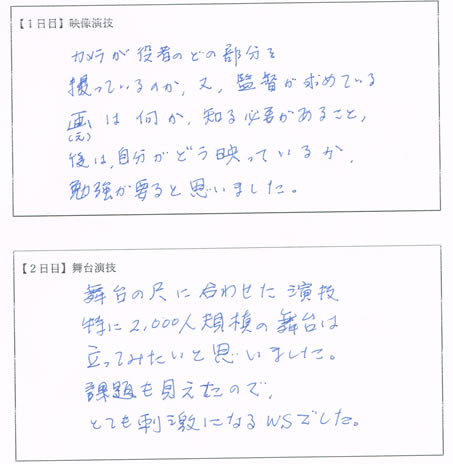 【1日目】映像演技
カメラが役者のどの部分を
撮っているのか、又、監督が求めている
画は何か、知る必要があること、
(え)
後は、自分がどう映っているか、
勉強が要ると思いました。
【2日目】舞台演技
舞台の尺に合わせた演技
特に2,000人規模の舞台は
立ってみたいと思いました。
課題も見えたので、
とても刺激になるWSでした。